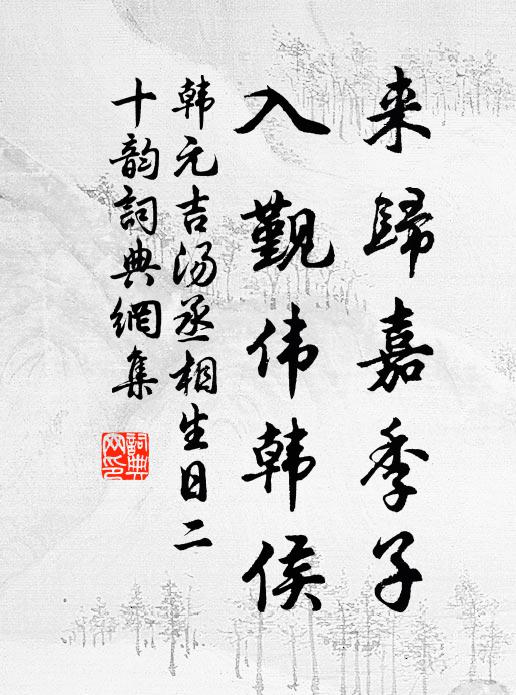 来歸嘉季子
入覲伟韩侯
韩元吉汤丞相生日二
十韵詞典網集
詞典
网印